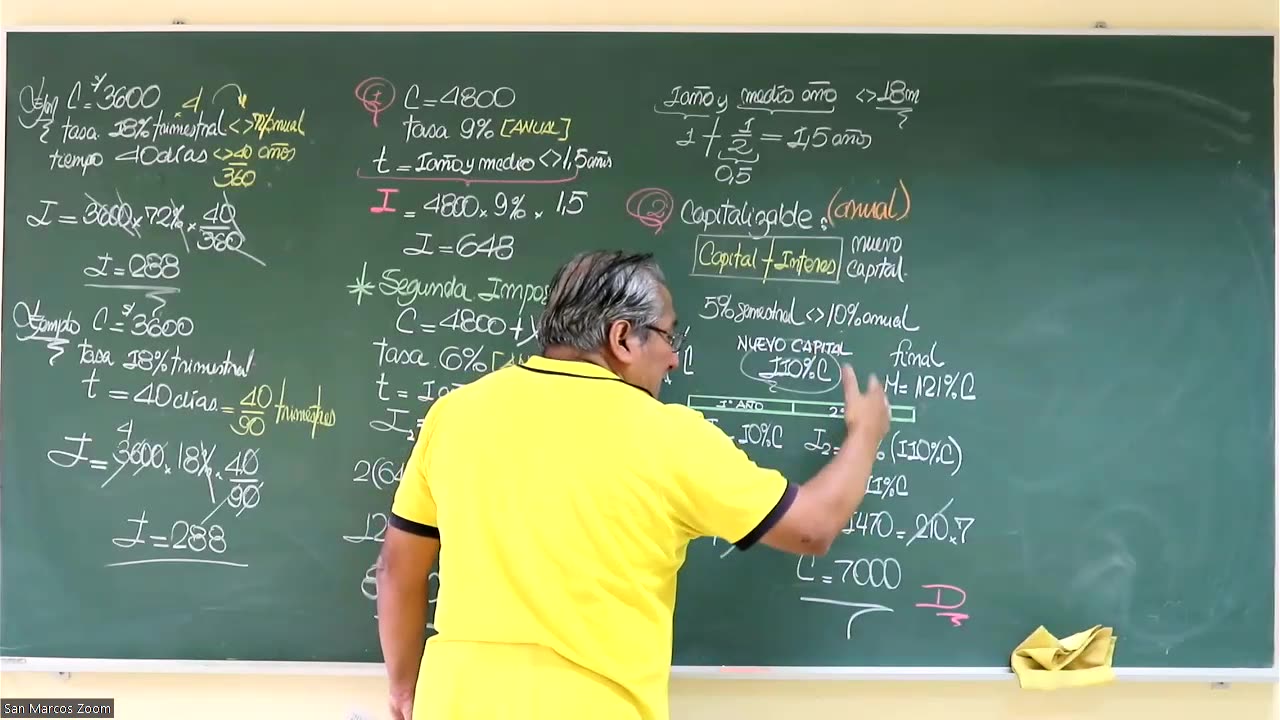 C=S/3600
tasa 18% trimestral <> 72% anual
x4
tiempo 40 días <> 40/360 años
I = 3600 x 72% x 40/360
I = 288
Ejemplo C=S/3600
tasa 18% trimestral
t = 40 días = 40/90 trimestres
4
I = 3600 . 18% . 40/90
I = 288
1 C=4800
tasa 9% [ANUAL]
t = 1año y medio <> 1,5 años
I = 4800 x 9% x 1,5
I = 648
* Segunda Impos
C=4800+
tasa 6%
t = 1
I2
2(64
12
8
1año y medio año <> 18m
1 + 1/2 = 1,5 años
0,5
2 Capitalizable: (anual)
Capital + Interes nuevo capital
5% semestral <> 10% anual
NUEVO CAPITAL
110%C
final
M = 121%C
1° AÑO 2
= 10%C I2= (110%C)
11%C
1470 = 210x7
C = 7000
D
San Marcos Zoom